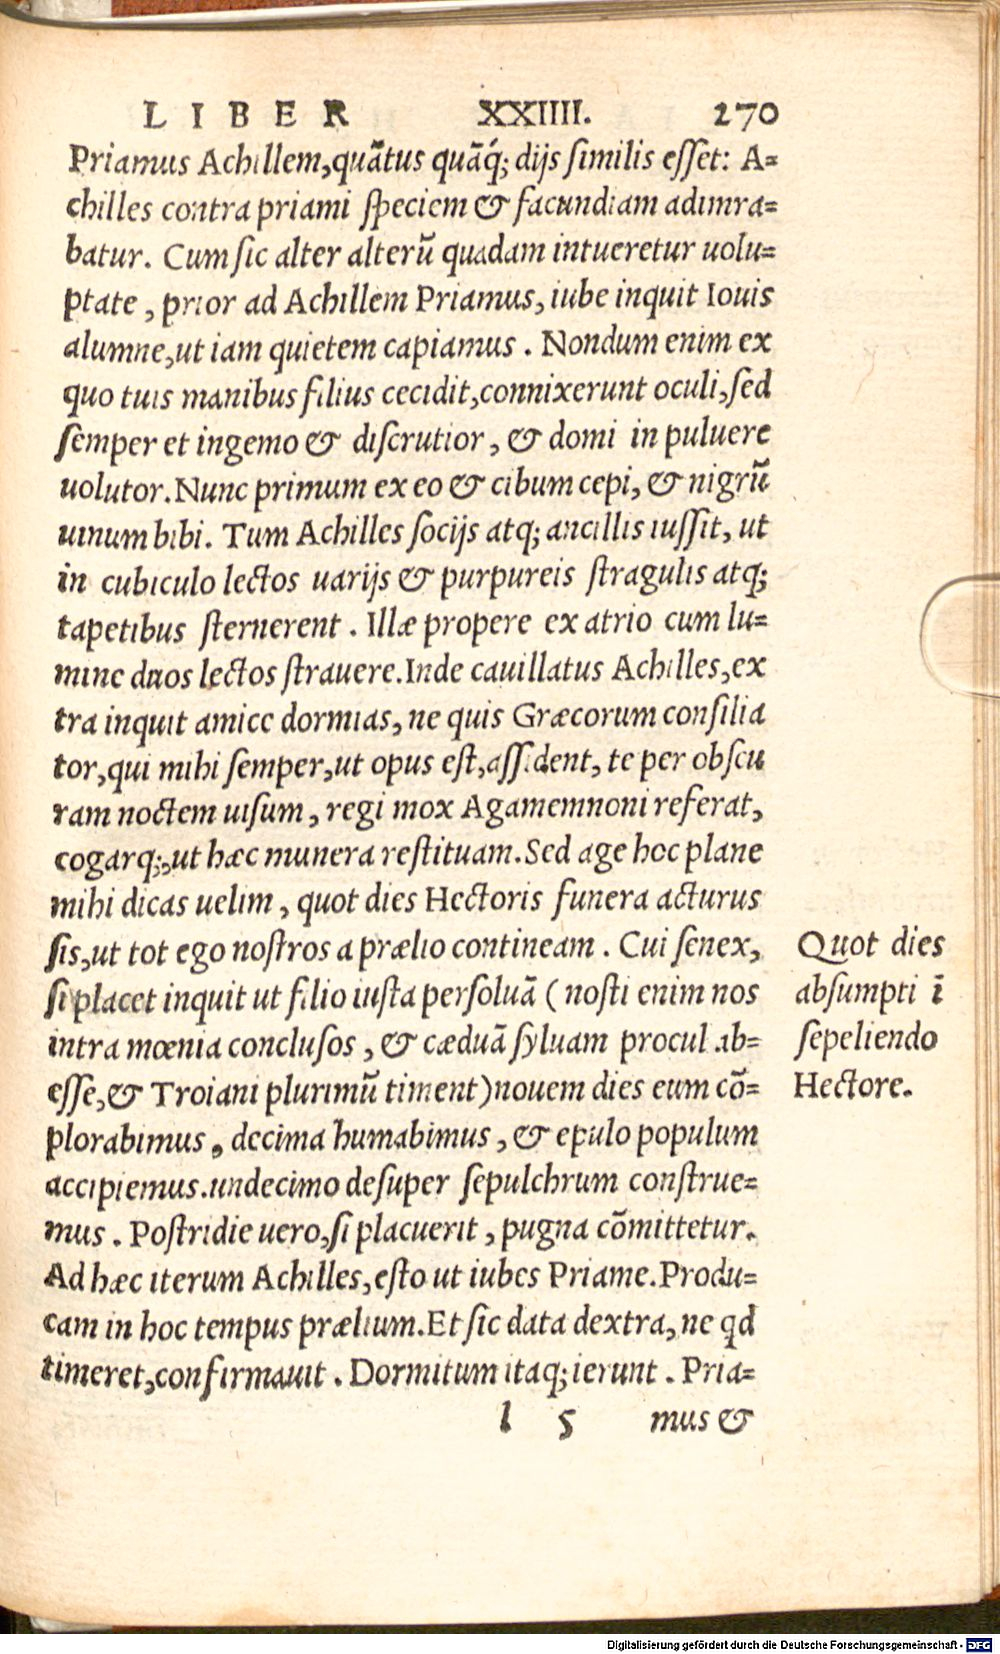 LIBER XXIIII. 270
Priamus Achillem,quātus quāq́; dijs similis esset: A=
chilles contra priami speciem & facundiam adimra=
batur. Cum sic alter alterū quadam intueretur uolu=
ptate, prior ad Achillem Priamus, iube inquit Iouis
alumne,ut iam quietem capiamus. Nondum enim ex
quo tuis manibus filius cecidit,connixerunt oculi,sed
semper et ingemo & discrutior, & domi in puluere
uolutor.Nunc primum ex eo & cibum cepi, & nigrū
uinum bibi. Tum Achilles socijs atq; ancillis iussit, ut
in cubiculo lectos uarijs & purpureis stragulis atq;
tapetibus sternerent. Illæ propere ex atrio cum lu=
mine duos lectos strauere.Inde cauillatus Achilles,ex
tra inquit amice dormias, ne quis Græcorum consilia
tor,qui mihi semper,ut opus est,assident, te per obscu
ram noctem uisum, regi mox Agamemnoni referat,
cogarq;,ut hæc munera restituam.Sed age hoc plane
mihi dicas uelim, quot dies Hectoris funera acturus
sis,ut tot ego nostros a prælio contineam. Cui senex,
si placet inquit ut filio iusta persoluā (nosti enim nos
intra mœnia conclusos, & cæduā syluam procul ab=
esse,& Troiani plurimū timent)nouem dies eum cō=
plorabimus, decima humabimus, & epulo populum
accipiemus.undecimo desuper sepulchrum construe=
mus. Postridie uero,si placuerit, pugna cōmittetur.
Ad hæc iterum Achilles,esto ut iubes Priame.Produ=
cam in hoc tempus prælium.Et sic data dextra, ne qd
timeret,confirmauit. Dormitum itaq; ierunt. Pria=
l 5 mus &
Quot dies
absumpti ī
sepeliendo
Hectore.
Digitalisierung gefördert durch die Deutsche Forschungsgemeinschaft - DFG